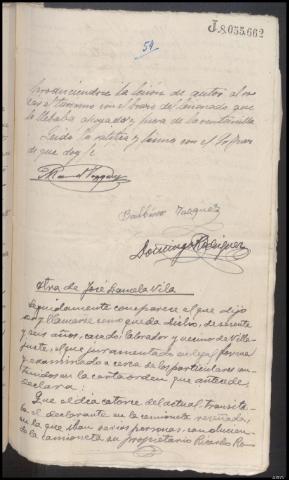 J.8.055.662
59
produciendose la lesion de autos al
el terreno con el brazo de lesionado que
lo llebaba apoyado y fuera de la ventanilla
Leida la ratifica y firma con el Sr Juez
de que doy fe
Balbino Vazquez
Domingo Rodriguez
Otra de José Varela Vila
Seguidamente comparece el que dijo
ser y llamarse como queda dicho, de sesenta
y seis años, casado, labrador y vecino de Villa-
juste, el que juramentado en legal forma
y examinado acerca de los particulares con-
tenidos en la carta orden que antecede,
declara:
Que el dia catorce del actual, transita-
ba el declarante en la camioneta reseñada,
en la que iban varias personas, conducien-
do la camioneta su propietario Ricardo Ro-